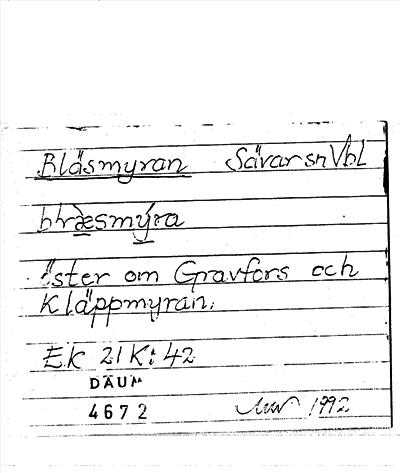 Bläsmyran Sävar sn Vbl
blræsmýra
Öster om Gravfors och
Kläppmyran.
Ek 21 K: 42
DÄUM
4672 1992